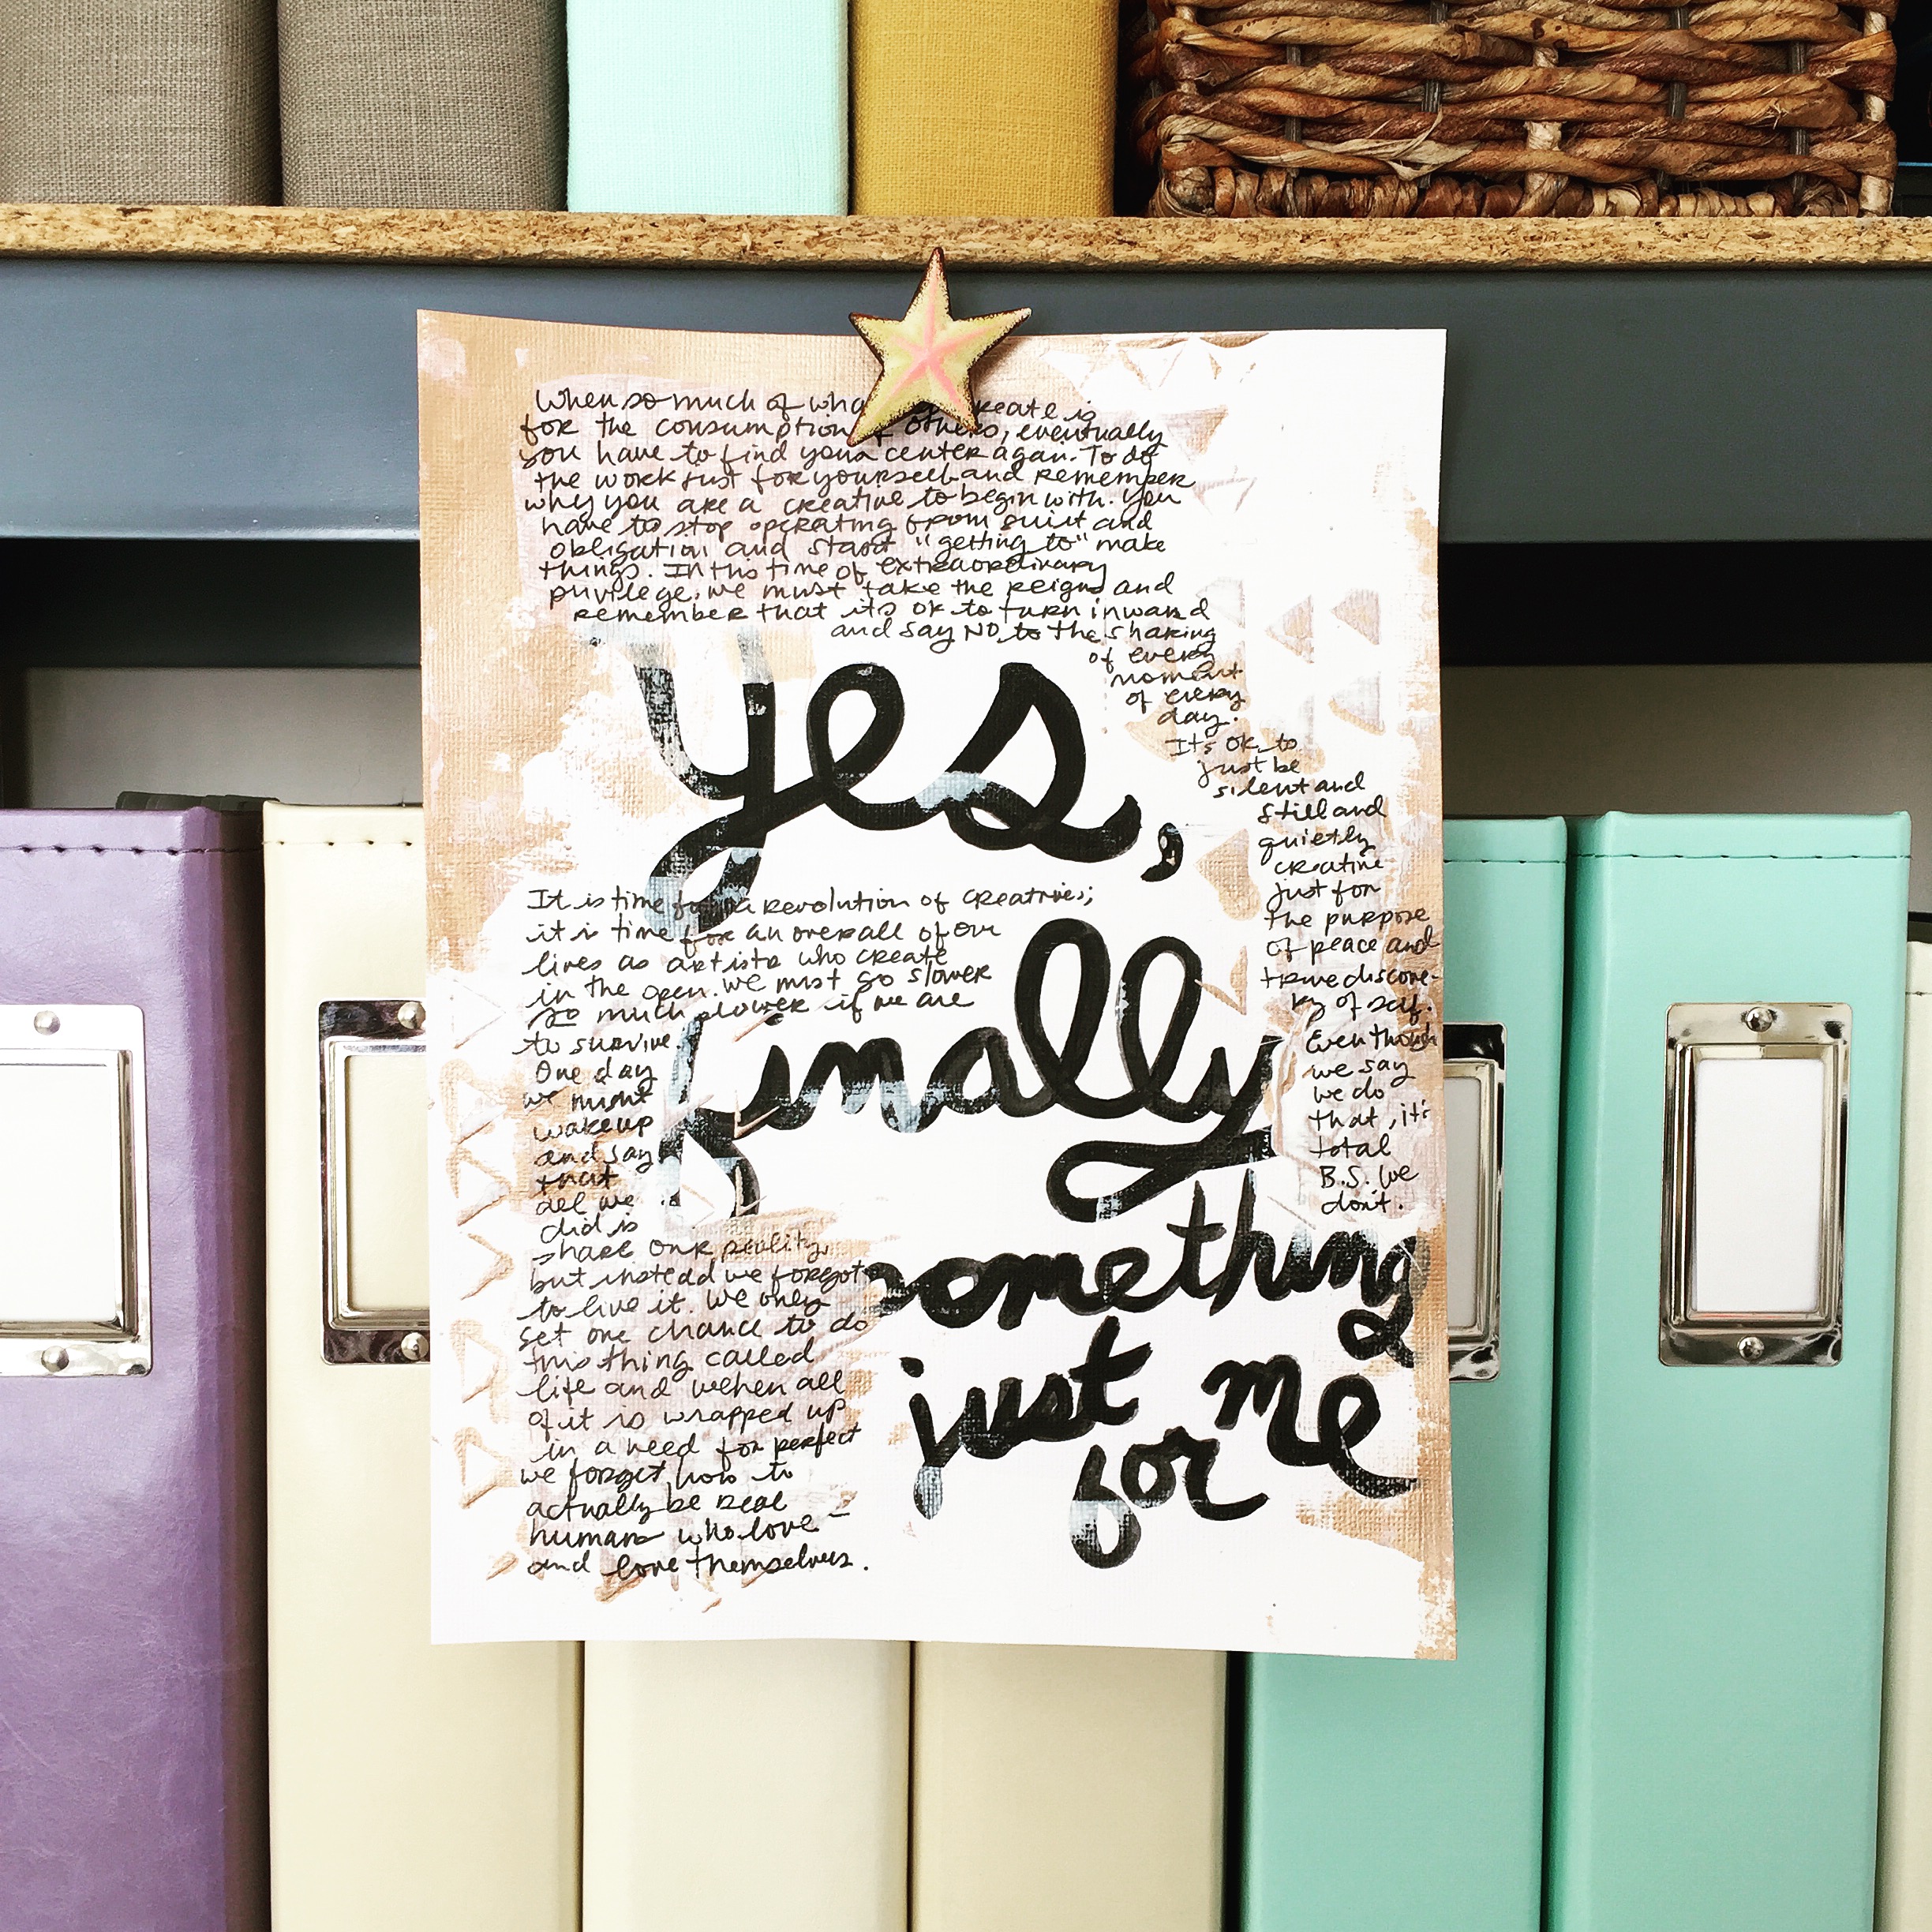 When so much of create is
for the consumption others, eventually
you have to find your center again. To do
the work just for yourself and remember
why you are a creative to begin with. You
have to stop operating from guilt and
obligation and start "getting to" make
things. In this time of extraordinary
privilege, we must take the reigns and
remember that its ok to turn inward
and say NO to the sharing
of every
moment
of every
day.
It's ok to
just be
silent and
still and
quietly
creative
just for
the purpose
of peace and
true discove-
ry of self.
Even though
we say
we do
that, it's
total
B.S. We
don't.
yes,
It is time for a revolution of creatives;
it is time for an overall of our
lives as artists who create
in the open. We must go slower
so much slower if we are
to survive.
One day
we might
wake up
and say
that
all we
did is
share our reality,
but instead we forgot
to live it. We only
get one chance to do
this thing called
life and when all
of it is wrapped up
in a need for perfect
we forget how to
actually be real
humans who love -
and love themselves.
finally
something
just for me